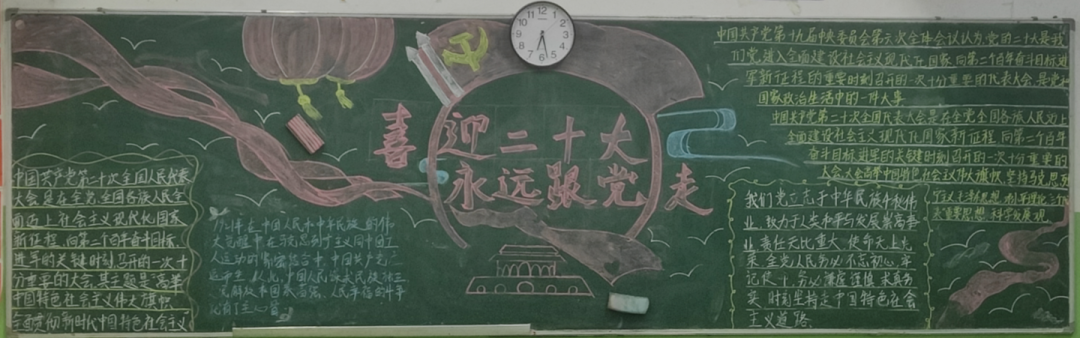 喜迎二十大
永远跟党走
中国共产党第二十次全国人民代表
大会是在全党全国各族人民全
面迈上社会主义现代化国家
新征程,向第二个百年奋斗目标
进军的关键时刻召开的一次十
分重要的大会,其主题是:高举
中国特色社会主义伟大旗帜
全面贯彻新时代中国特色社会主义
1921年在中国人民和中华民族的伟
大觉醒中在马克思列宁主义同中国工
人运动的紧密结合中,中国共产党
中国共产党第十九届中央委员会第六次全体会议认为党的二十大是我
们党进入全面建设社会主义现代化国家向第二个百年奋斗目标进
军新征程的重要时刻召开的一次十分重要的代表大会是党和
国家政治生活中的一件大事
中国共产党第二十次全国代表大会是在全党全国各族人民迈上
全面建设社会主义现代化国家新征程向第二个百年
奋斗目标进军的关键时刻召开的一次十分重要的
大会,大会高举中国特色社会主义伟大旗帜坚持马克思
表重要思想 科学发展观
我们党立志于中华民族千秋伟
业,致力于人类和平与发展崇高事
业,责任无比重大,使命无上光
荣,全党人员务必不忘初心,牢
记使命,务必谦虚谨慎
实,时刻坚持走中国特色社会
主义道路.